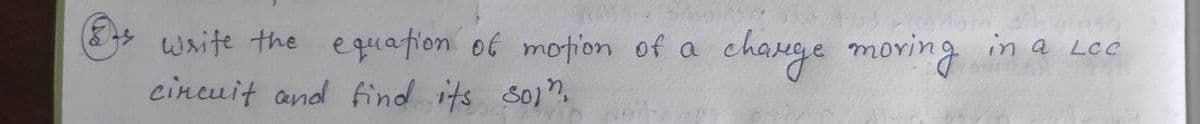 8→ Write the equation of motion of a charge moving in a LCC
circuit and find its solⁿ.